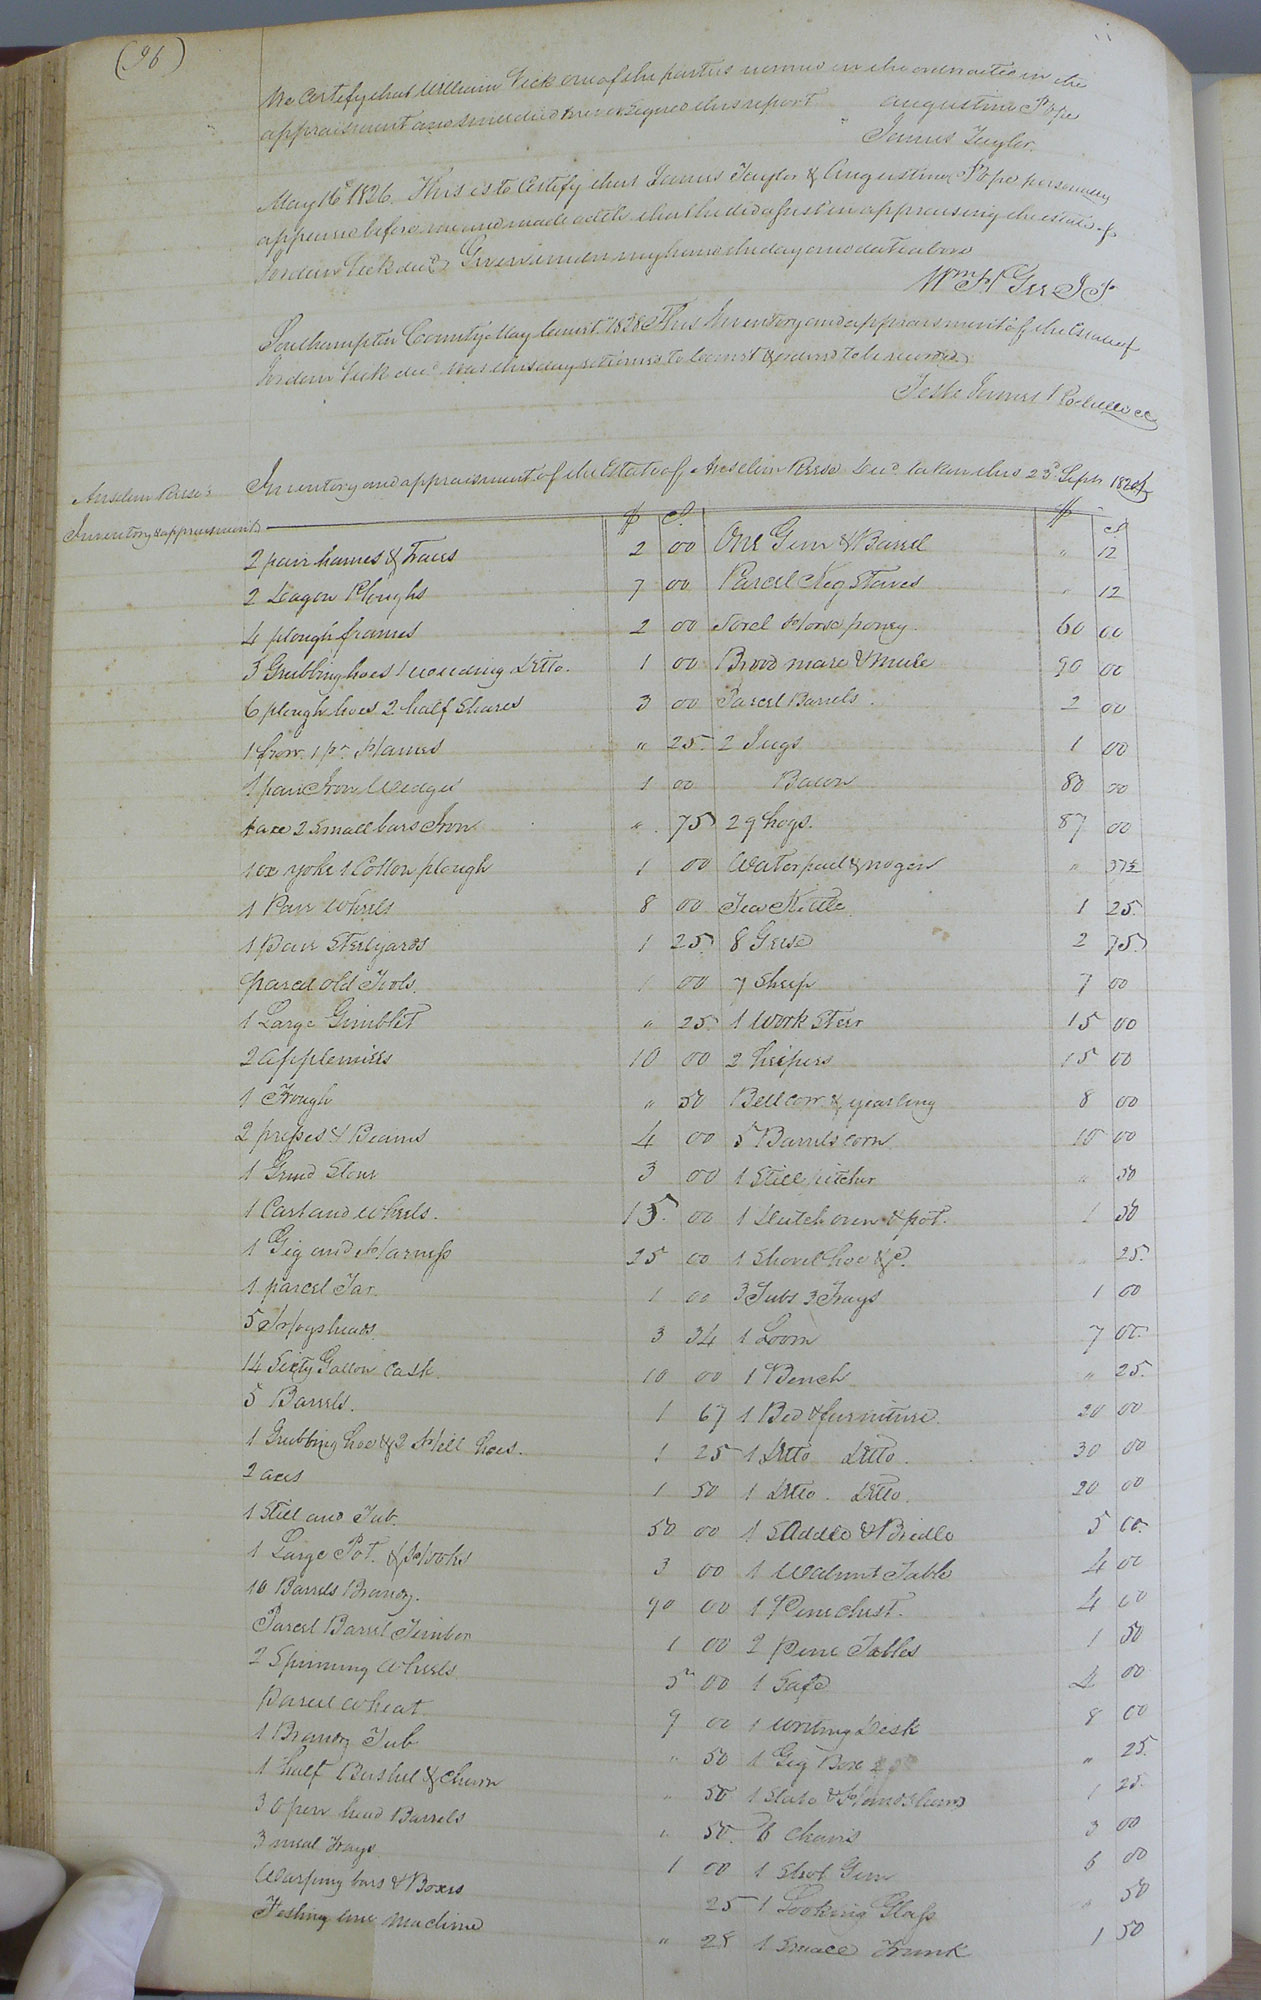 (96)
We Certify that William Vick one of the parties named in the order acted in the
appraisment and since died & never signed this report Augustine Pope
James Taylor.
May 16th 1826. This is to Certify that James Taylor & Augustine Pope personaly
appeard before me and made oath that the did assist in appraising the estate of
Jordan Vick decd. Given under my hand the day and date above
Wm H Gee J.P.
Southampton County May Court 1826 This Inventory and appraisment of the Estate of
Jordan Vick decd was this day returned to Court & ordered to be recorded
Teste James Rochelle CC
Anselm Reese's
Inventory & appraisment
Inventory and appraisment of the Estate of Anselm Reese Decd taken this 23d Septr 1824
$ C. $ C.
2 pair hames & Traces 2 00 One Gum & Barrel " 12
2 Dagon Ploughs 7 00 Parcel Keg Staves " 12
4 plough frames 2 00 Sorel Horse poney 60 00
3 Grubbing hoes 1 weeding Ditto. 1 00 Brood mare & Mule 90 00
6 plough hoes 2 half Shares 3 00 Parcel Barrels. 2 00
1 frow. 1 pr. Hames " 25 2 Jugs 1 00
1 pair Iron Wedges 1 00 Bacon 80 00
1 axe 2 Small bars Iron " 75 29 hogs. 87 00
1 ox yoke 1 Cotton plough 1 00 Water pail & nogen " 37½
1 Pair Wheels 8 00 Tea Kittle 1 25
1 Pair Steelyards 1 25 8 Geese 2 75
parcel old Tools 1 00 7 Sheep 7 00
1 Large Gimblet " 25 1 Work Steer 15 00
2 Applemills 10 00 2 heifers 15 00
1 Trough " 50 Bell cow & yearling 8 00
2 presses & Beams 4 00 5 Barrels corn 10 00
1 Grind Stone 3 00 1 Still pitcher " 50
1 Cart and wheels. 15. 00 1 Dutch oven & pot. 1 50
1 Gig and Harness 25 00 1 Shovel hoe &c. " 25
1 parcel Tar. 1 00 3 Tubs 3 Trays 1 00
5 Hogsheads. 3 34 1 Loom 7 00
14 Sixty Gallon Cask 10 00 1 Bench " 25
5 Barrels. 1 67 1 Bed & furniture. 20 00
1 Grubbing hoe & 2 Hill hoes. 1 25 1 Ditto Ditto. 30 00
2 axes 1 50 1 Ditto. Ditto. 20 00
1 Still and Tub. 50 00 1 Saddle & Bridle 5 00
1 Large Pot. & Hooks 3 00 1 Walnut Table 4 00
10 Barrels Brandy. 90 00 1 Pine chest. 4 00
Parcel Barrel Timber 1 00 2 Pine Tables 1 50
2 Spinning Wheels 5 00 1 Safe 4 00
Parcel Wheat 9 00 1 Writing Desk 8 00
1 Brandy Tub " 50 1 Gig Box " 25
1 half Bushel & churn " 50 1 Slate & Hand Saw 1 25
3 open head Barrels " 50 6 chairs 3 00
3 meal Trays 1 00 1 Shot Gun 6 00
Warping bars & Boxes 25 1 Looking Glass " 50
Fishing line machine " 25 1 Small Trunk 1 50